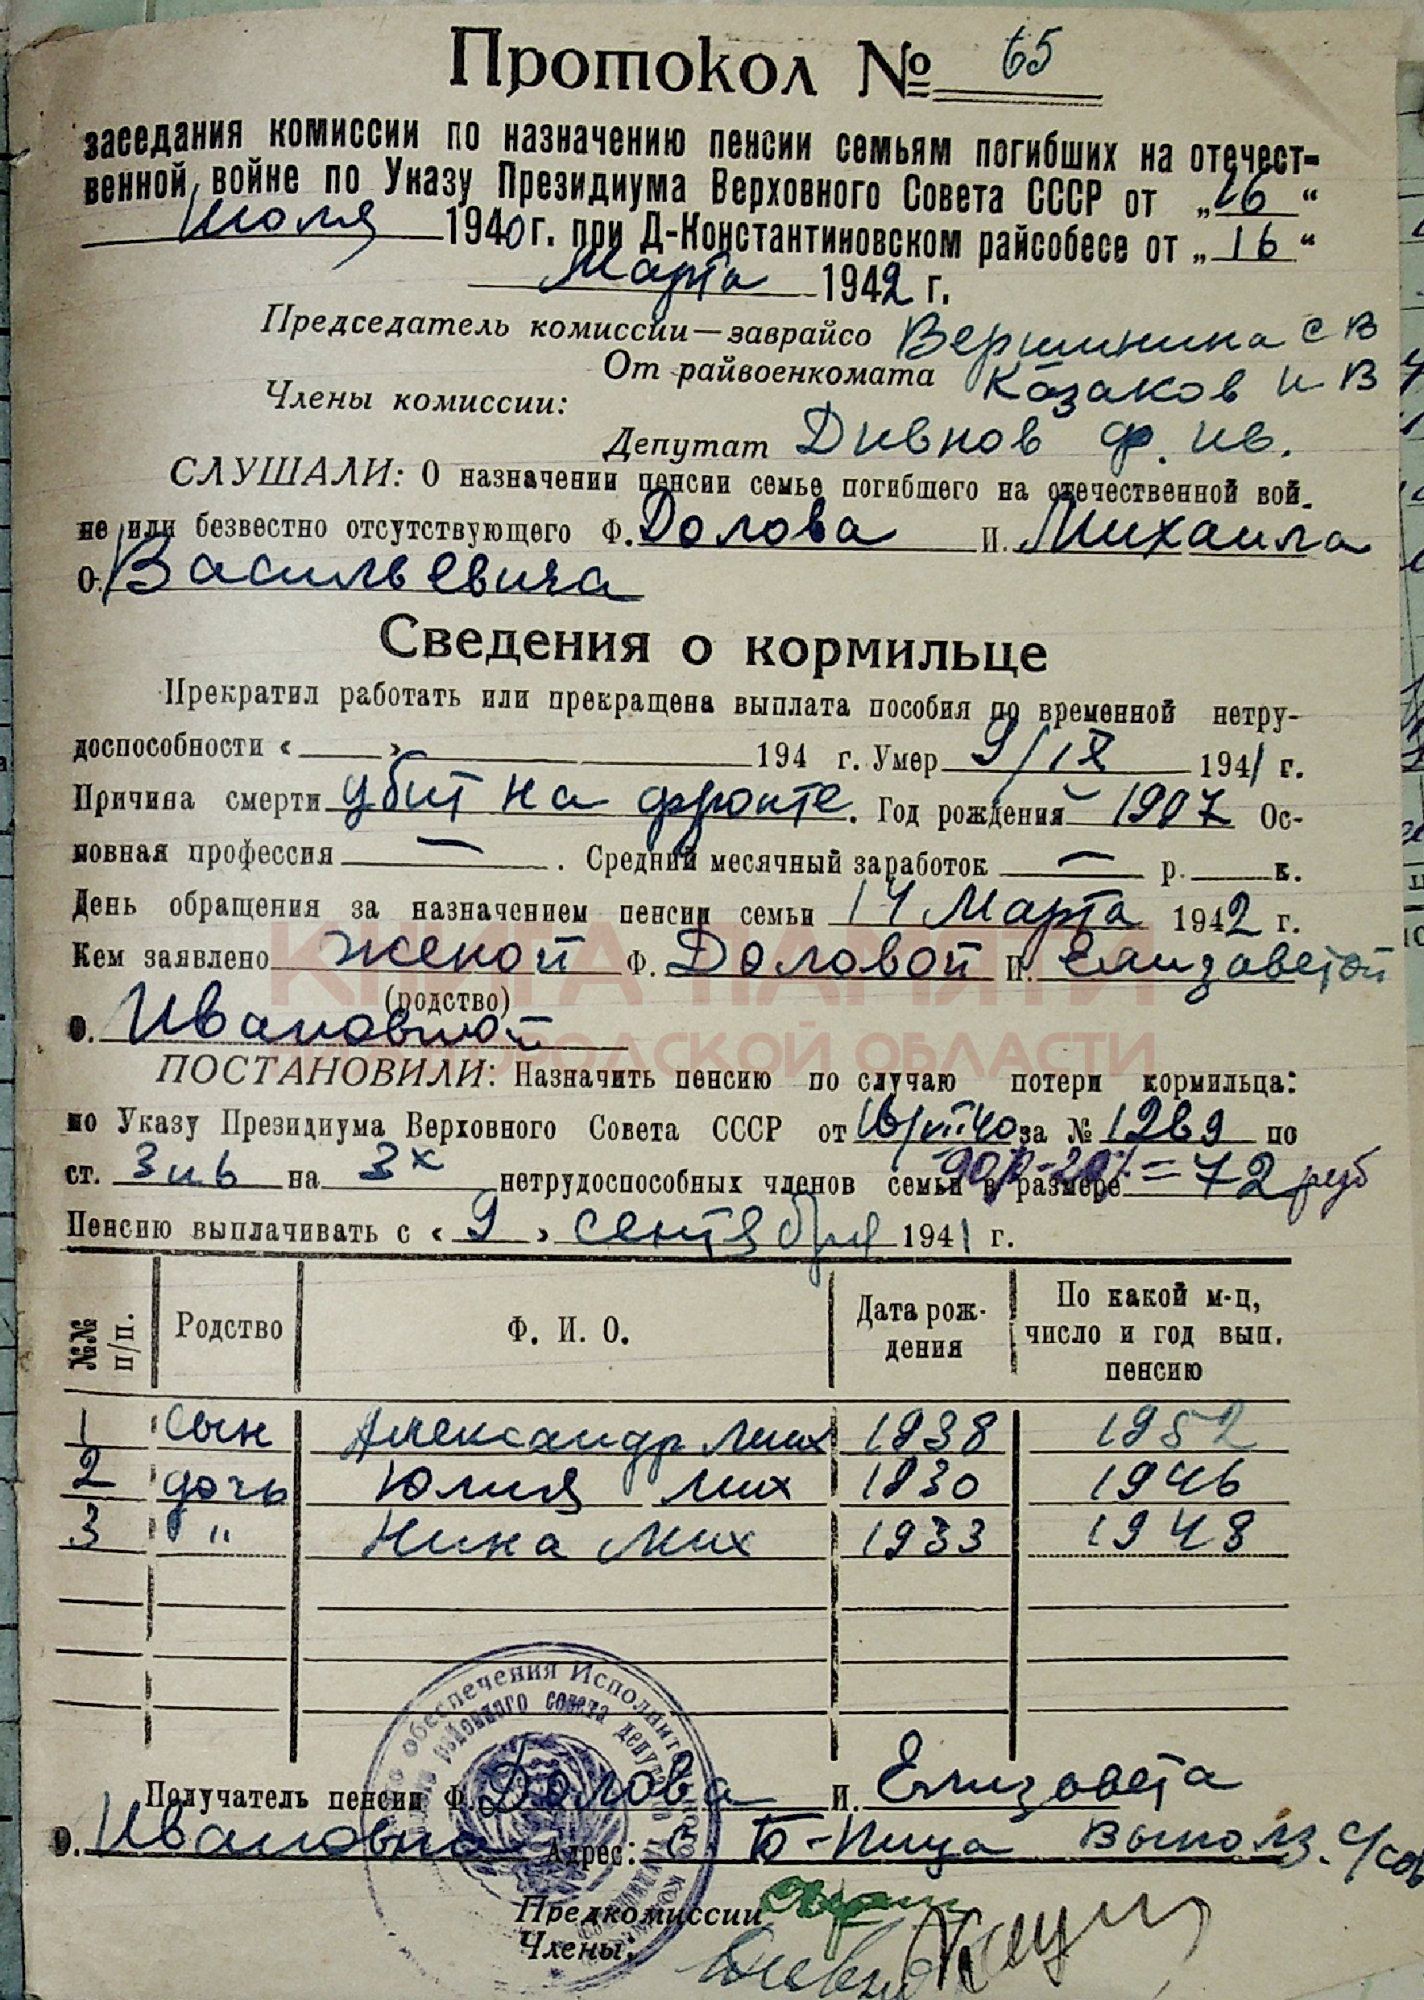 Протокол № 65
заседания комиссии по назначению пенсии семьям погибших на отечест-
венной войне по Указу Президиума Верховного Совета СССР от „16“
Июля 1940 г. при Д-Константиновском райсобесе от „16“
Марта 1942 г.
Председатель комиссии—заврайсо Вершинина С В
От райвоенкомата Казаков И В
Члены комиссии:
Депутат Дивнов Ф. Ив.
СЛУШАЛИ: О назначении пенсии семье погибшего на отечественной вой-
не или безвестно отсутствующего Ф. Долова И. Михаила
О. Васильевича
Сведения о кормильце
Прекратил работать или прекращена выплата пособия по временной нетру-
доспособности « » 194 г. Умер 9/IX 1941 г.
Причина смерти убит на фронте. Год рождения 1907 Ос-
новная профессия — . Средний месячный заработок — р. к.
День обращения за назначением пенсии семьи 14 Марта 1942 г.
Кем заявлено женой Ф. Доловой И. Елизаветой
(родство)
О. Ивановной
КНИГА ПАМЯТИ
НИЖЕГОРОДСКОЙ ОБЛАСТИ
ПОСТАНОВИЛИ: Назначить пенсию по случаю потери кормильца:
по Указу Президиума Верховного Совета СССР от 16/VII 40 за № 1269 по
ст. 3 и 6 на 3х нетрудоспособных членов семьи в размере 90р-20% = 72 руб
Пенсию выплачивать с « 9 » сентября 1941 г.
№№ п/п. Родство Ф. И. О. Дата рож-дения По какой м-ц, число и год вып. пенсию
1 Сын Александр Мих 1938 1952
2 дочь Юлия Мих 1930 1946
3 " Нина Мих 1933 1948
обеспечения Исполнительного
районного совета депутатов
Получатель пенсии Ф. Долова И. Елизавета
О. Ивановна Адрес: С Б-Пица Выполз. с/сов
Предкомиссии
Члены: